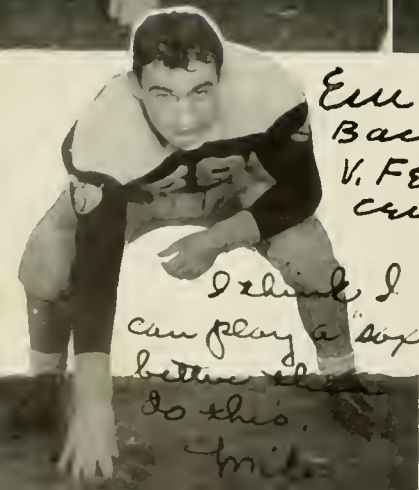 Em
Bac
V. Fe
cen
I think I
can play a "sax
better than
do this.
Mike